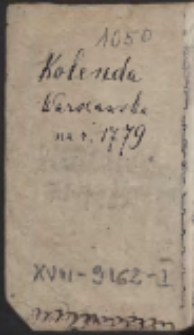 1050
Kolenda
Warszawska
na r. 1779
XVIII-9162-I